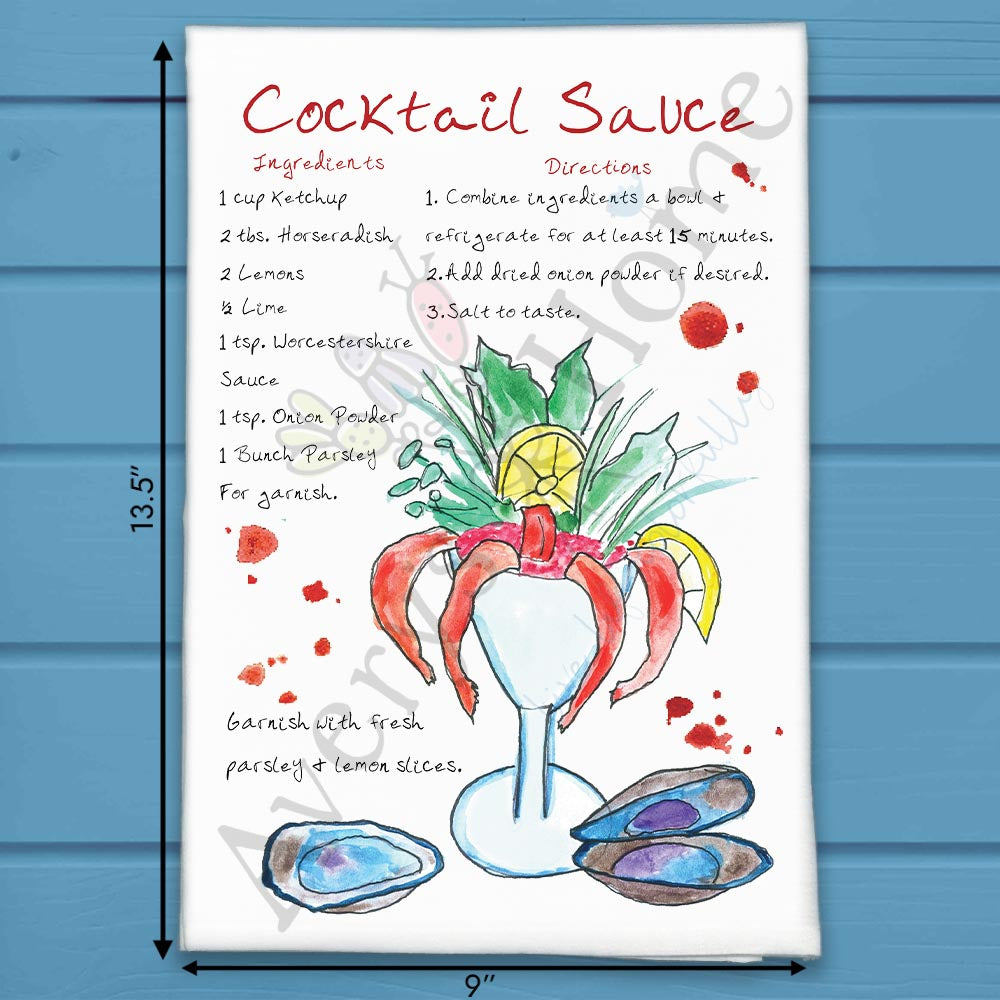 Cocktail Sauce
Ingredients
1 cup Ketchup
2 tbs. Horseradish
2 Lemons
½ Lime
1 tsp. Worcestershire
Sauce
1 tsp. Onion Powder
1 Bunch Parsley
For garnish.
Directions
1. Combine ingredients a bowl &
refrigerate for at least 15 minutes.
2. Add dried onion powder if desired.
3. Salt to taste.
Garnish with fresh
parsley & lemon slices.
13.5"
9"
Avery Home